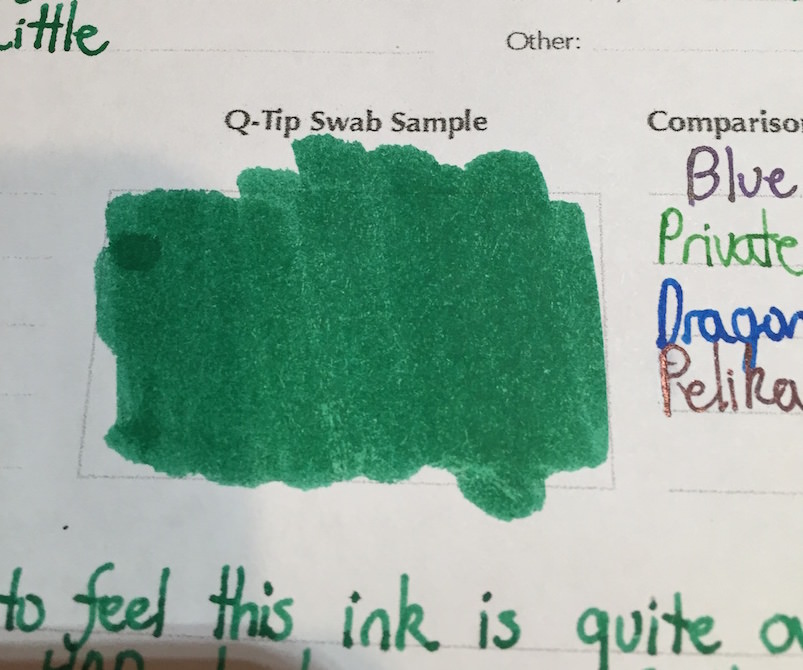 Little
Other:
Q-Tip Swab Sample
Comparison
Blue
Private
Dragon
Pelika
to feel this ink is quite